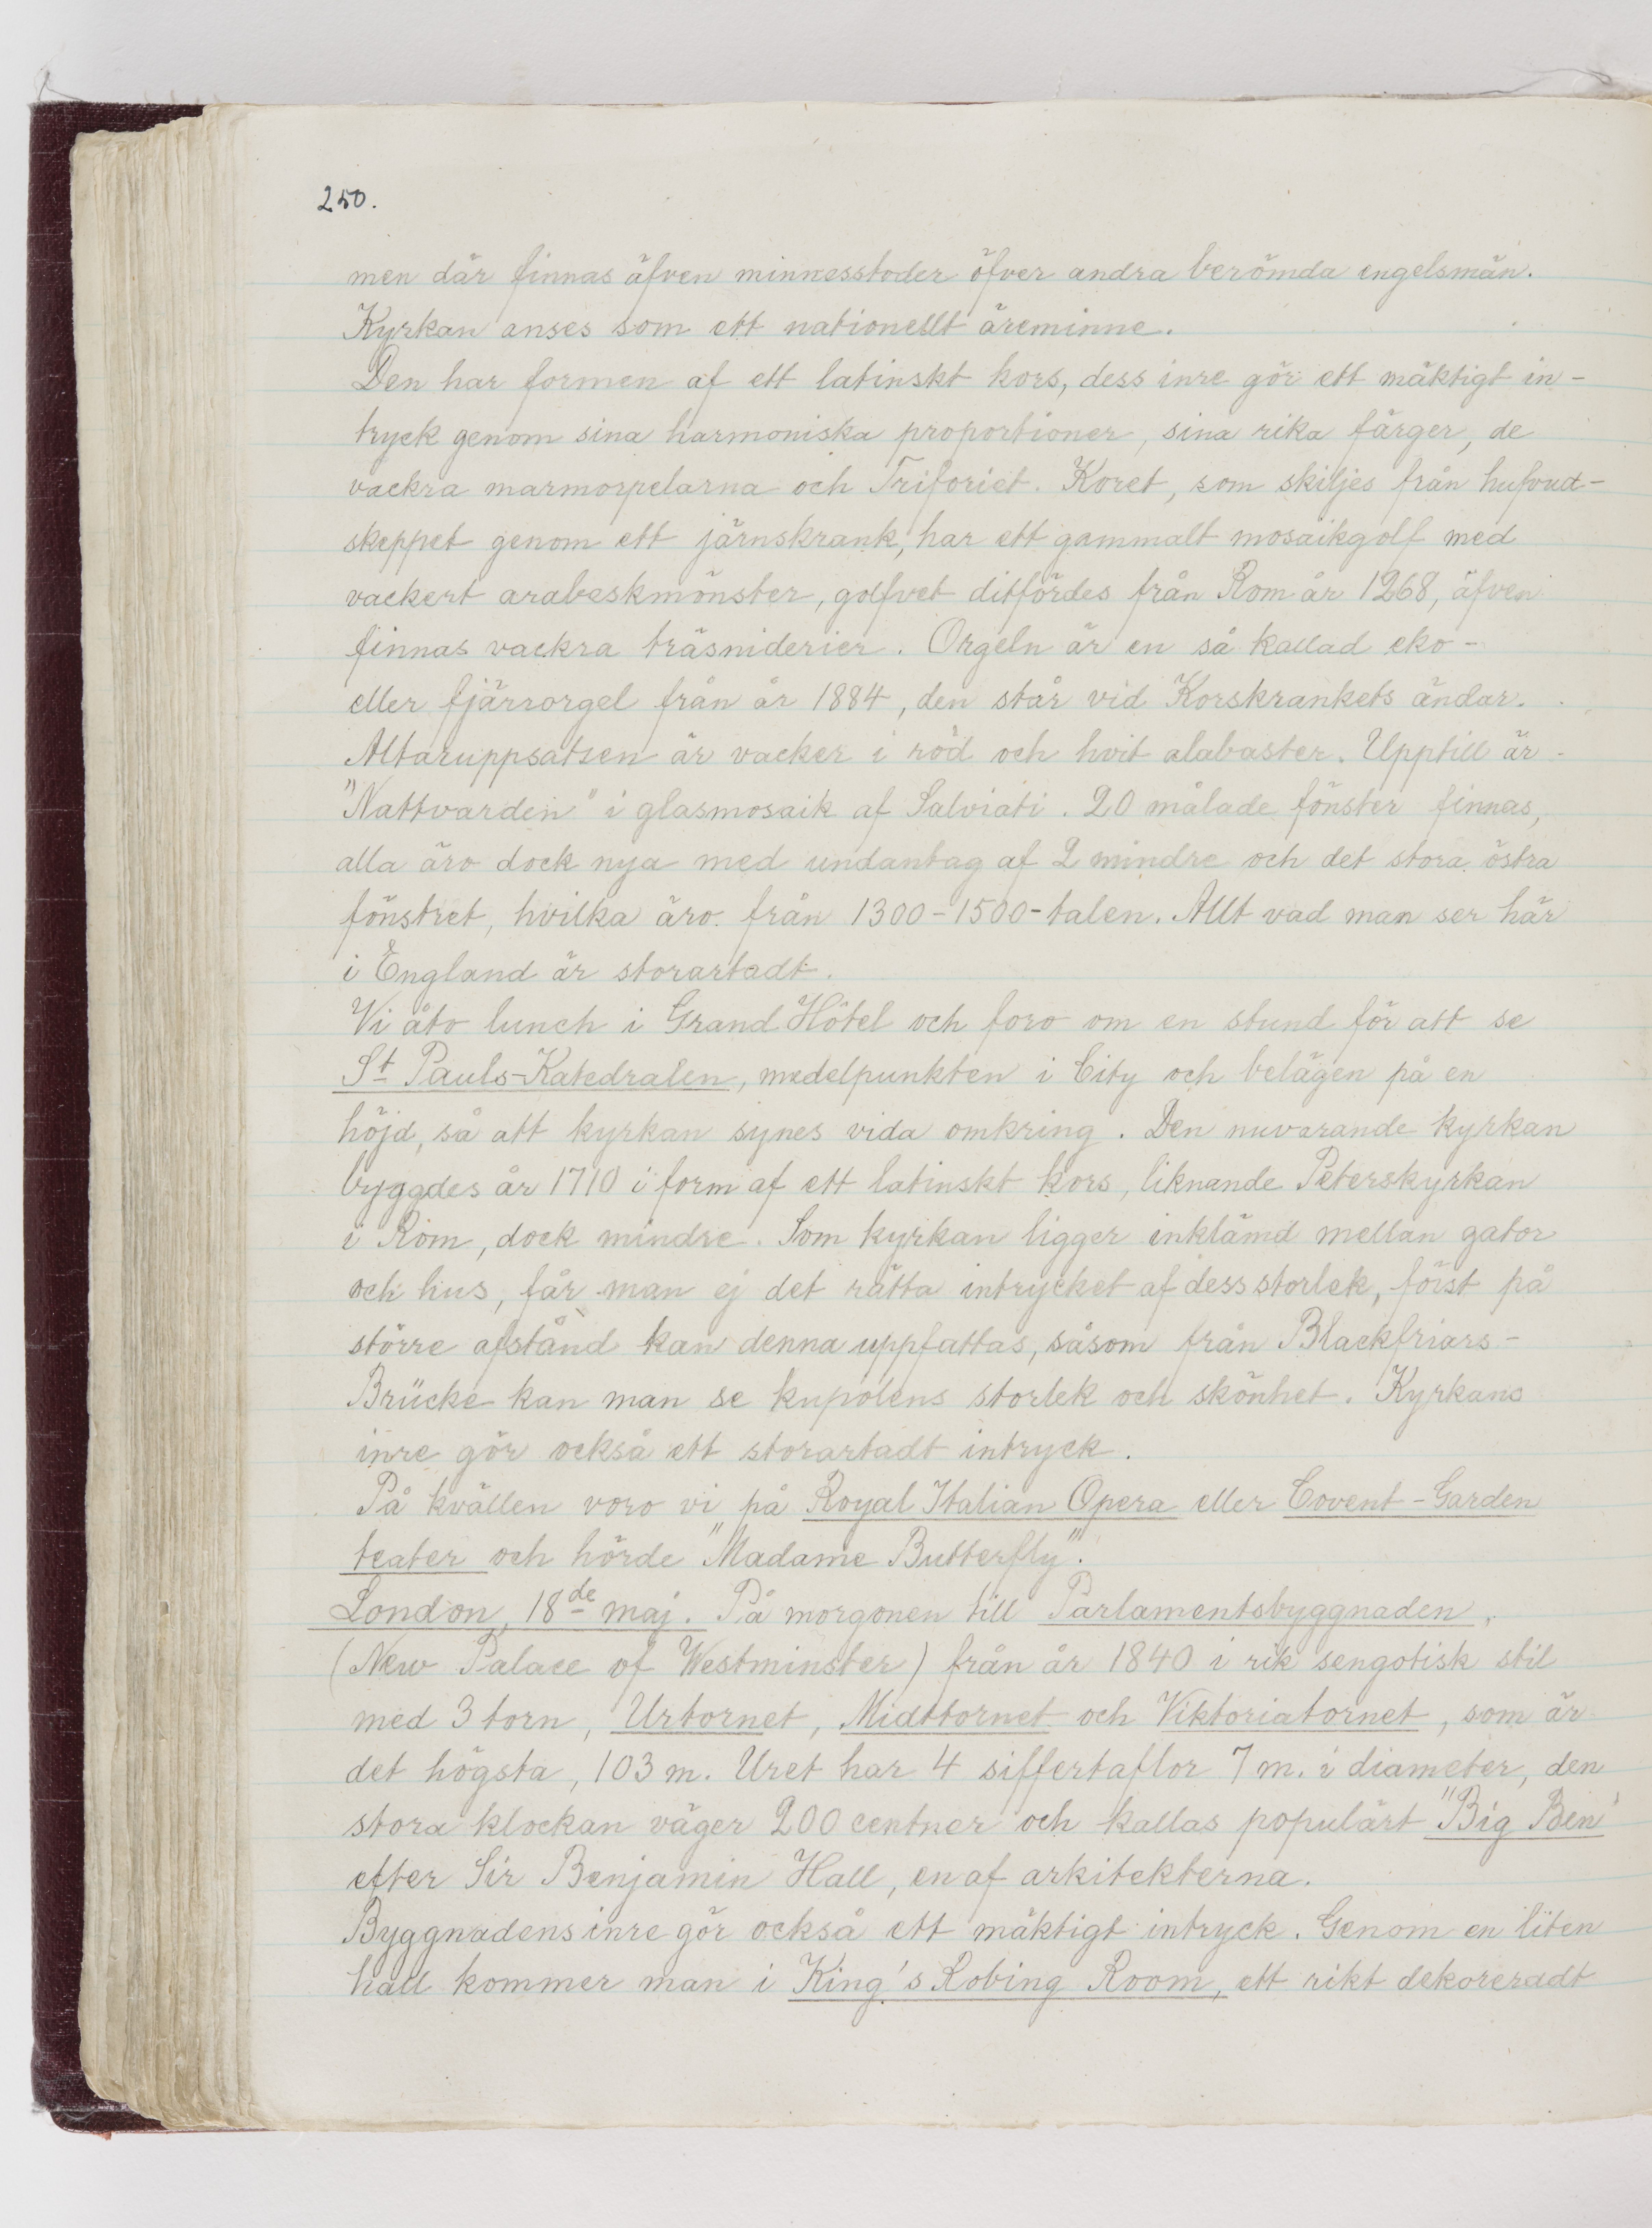 250.
men där finnas äfven minnesstoder öfver andra berömda engelsmän.
Kyrkan anses som ett nationellt äreminne.
Den har formen af ett latinskt kors, dess inre gör ett mäktigt in-
tryck genom sina harmoniska proportioner, sina rika färger, de
vackra marmorpelarna och Triforiet. Koret, som skiljes från hufvud-
skeppet genom ett järnskrank, har ett gammalt mosaikgolf med
vackert arabeskmönster, golfvet ditfördes från Rom år 1268, äfven
finnas vackra träsniderier. Orgeln är en så kallad eko-
eller fjärrorgel från år 1884, den står vid Korskrankets ändar.
Altaruppsatsen är vacker i röd och hvit alabaster. Upptill är
"Nattvarden" i glasmosaik af Salviati. 20 målade fönster finnas,
alla äro dock nya med undantag af 2 mindre och det stora östra
fönstret, hvilka äro från 1300-1500-talen. Allt vad man ser här
i England är storartadt.
Vi åto lunch i Grand Hôtel och foro om en stund för att se
St Pauls-Katedralen, medelpunkten i City och belägen på en
höjd, så att kyrkan synes vida omkring. Den nuvarande kyrkan
byggdes år 1710 i form af ett latinskt kors, liknande Peterskyrkan
i Rom, dock mindre. Som kyrkan ligger inklämd mellan gator
och hus, får man ej det rätta intrycket af dess storlek, först på
större afstånd kan denna uppfattas, såsom från Blackfriars-
Brücke kan man se kupolens storlek och skönhet. Kyrkans
inre gör också ett storartadt intryck.
På kvällen voro vi på Royal Italian Opera eller Covent-Garden
teater och hörde "Madame Butterfly".
London, 18de maj. På morgonen till Parlamentsbyggnaden,
(New Palace of Westminster) från år 1840 i rik sengotisk stil
med 3 torn, Urtornet, Midttornet och Viktoriatornet, som är
det högsta, 103 m. Uret har 4 siffertaflor 7 m. i diameter, den
stora klockan väger 200 centner och kallas populärt "Big Ben"
efter Sir Benjamin Hall, en af arkitekterna.
Byggnadens inre gör också ett mäktigt intryck. Genom en liten
hall kommer man i King's Robing Room, ett rikt dekoreradt